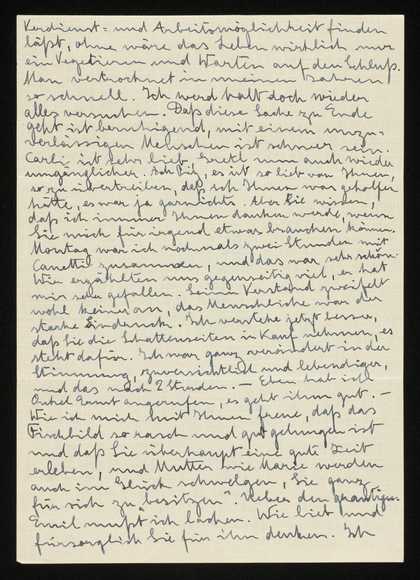 Verdienst= und Arbeitsmöglichkeit finden
läßt, ohne wäre das Leben wirklich nur
ein Vegetieren und Warten auf den Schluß.
Man vertrocknet in meinen Jahren
so schnell. Ich werd halt doch wieder
alles versuchen. Daß diese Sache zu Ende
geht ist beruhigend, mit einem unzu-
verlässigen Menschen ist schwer sein.
Carli ist sehr lieb, Gretl nun auch wieder
umgänglicher. Ach Sie, es ist so lieb von Ihnen,
so zu übertreiben, daß ich Ihnen was geholfen
hätte, es war ja garnichts. Aber Sie wissen,
daß ich immer Ihnen danken werde, wenn
Sie mich für irgend etwas brauchen können.
Montag war ich nochmals zwei Stunden mit
Canetti zusammen, und das war sehr schön.
Wir erzählten uns gegenseitig viel, er hat
mir sehr gefallen. Seinen Verstand zweifelt
wohl keiner an, das Menschliche war der
starke Eindruck. Ich verstehe jetzt besser,
daß Sie die Schattenseiten in Kauf nehmen, es
steht dafür. Ich war ganz verändert in der
Stimmung, zuversichtlich und lebendiger,
und das nach 2 Stunden. — Eben hat ich
Onkel Ernst angerufen, es geht ihm gut. —
Wie ich mich mit Ihnen freue, daß das
Fischbild so rasch und gut gelungen ist
und daß Sie überhaupt eine gute Zeit
erleben, und Mutter wie Marie werden
auch im Glück schwelgen, Sie ganz
für sich zu "besitzen". Ueber den grantigen
Emil mußt ich lachen. Wie lieb und
fürsorglich Sie für ihn denken. Ich